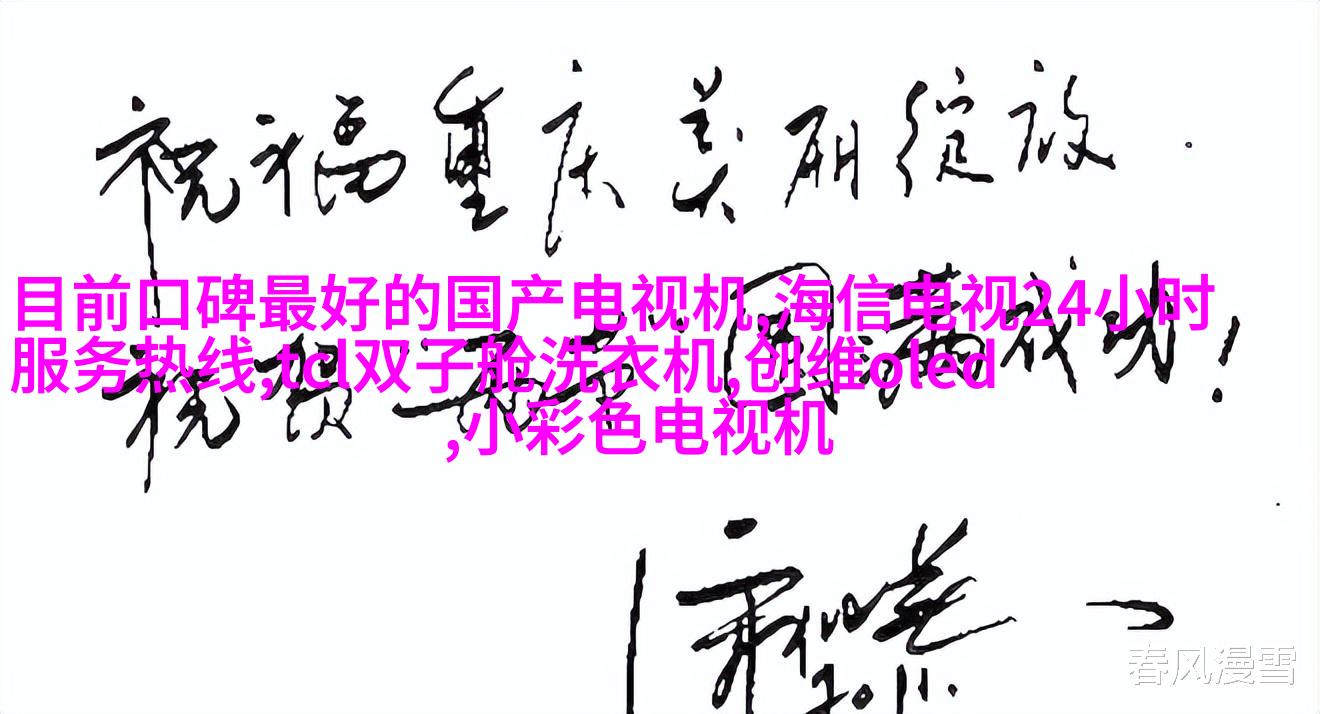 祝福重庆美丽绽放.
目前口碑最好的国产电视机,海信电视24小时
服务热线,tcl双子舱洗衣机,创维oled
,小彩色电视机
圆满成功!
2011.
春风漫雪